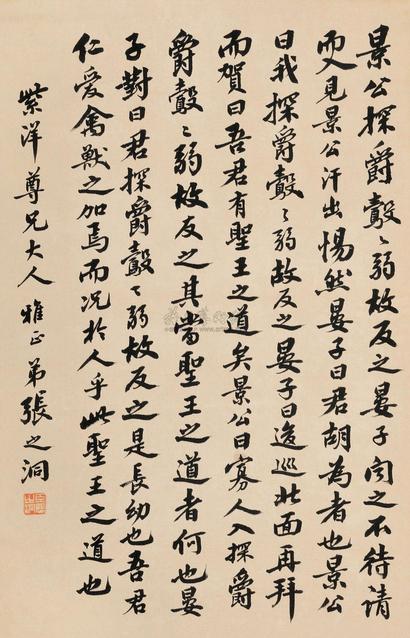 景公探爵鷇〻弱故反之晏子聞之不待請
而入見景公汗出惕然晏子曰君胡為者也景公
曰我探爵鷇〻弱故反之晏子曰逡巡北面再拜
而賀曰吾君有聖王之道矣景公曰寡人入探爵
爵鷇〻弱故反之其當聖王之道者何也晏
子對曰君探爵鷇〻弱故反之是長幼也吾君
仁愛禽獸之加焉而況於人乎此聖王之道也
紫洋尊兄大人雅正弟張之洞